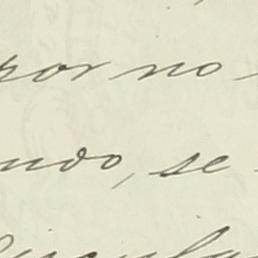 por no
ndo, se